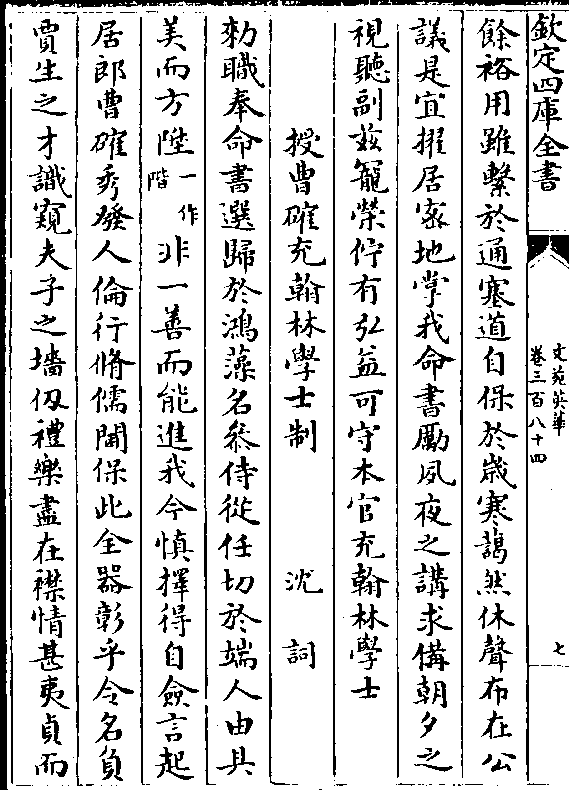 欽定四庫全書
文苑英華
卷三百八十四
七
餘裕用雖繫於通塞道自保於歲寒藹然休聲布在公
議是宜擢居宻地掌我命書勵夙夜之講求備朝夕之
視聽副兹寵榮佇有弘益可守本官充翰林學士
授曹確充翰林學士制 沈詞
勑職奉命書選歸於鴻藻名叅侍從任切於端人由具
美而方陞一作階非一善而能進我今慎擇得自僉言起
居郎曹確秀發人倫行脩儒閫保此全器彰乎令名負
賈生之才識窺夫子之墻仭禮樂盡在襟情甚夷貞而